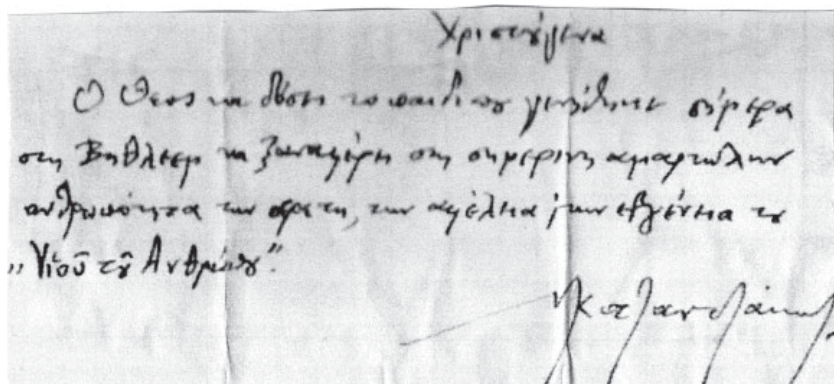 Χριστούγεννα
Ο Θεος να δώση το παιδι που γεννήθηκε σήμερα
στη Βηθλεεμ να ξαναφέρη στη σημερινη αμαρτωλη
ανθρωπότητα την αρετη, την αφέλεια, την ευγένεια του
"Υἱοῦ τοῦ Ἀνθρώπου".